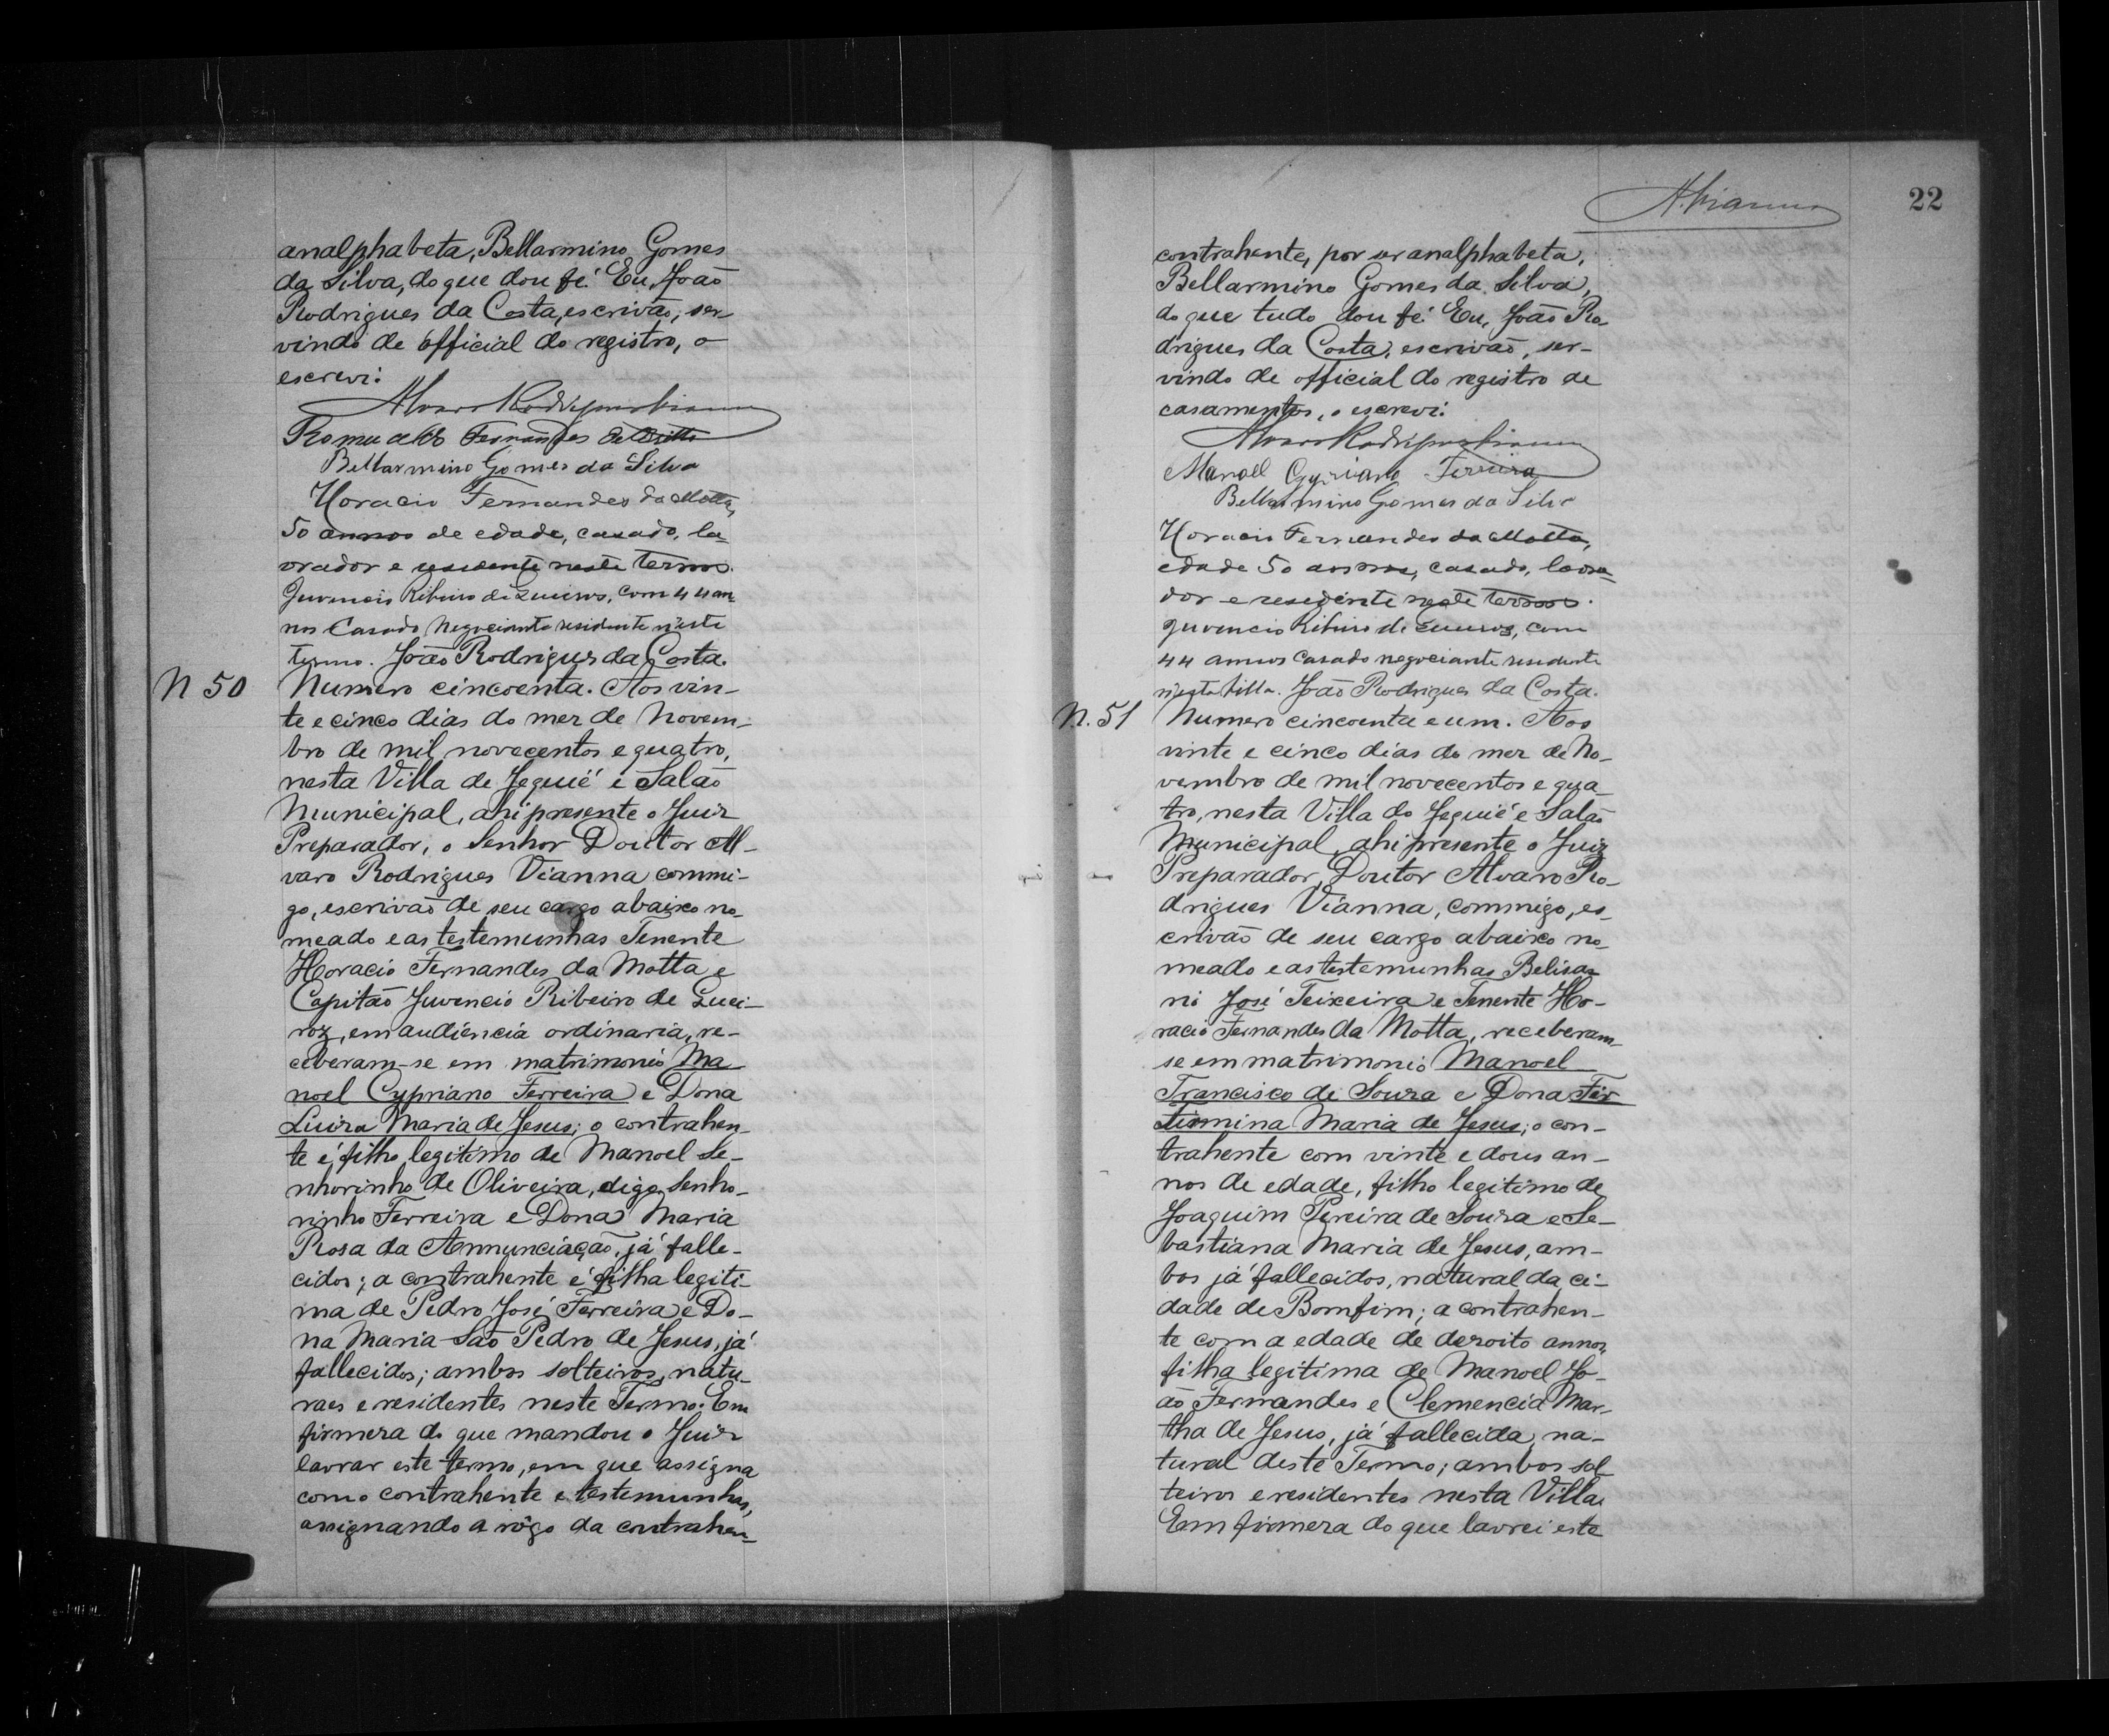 analphabeta, Bellarmino Gomes
da Silva, do que dou fé. Eu, João
Rodrigues da Costa, escrivão, ser-
vindo de official do registro, o
escrevi.
Alvaro Rodrigues Vianna
Romualdo Fernandes de Britto
Bellarmino Gomes da Silva
Horacio Fernandes da Motta,
50 annos de edade, casado, la-
vrador e residente neste termo.
Juvencio Ribeiro de Queiros, com 44 an-
nos Casado Negociante residente n'este
termo. João Rodrigues da Costa.
N 50
Numero cincoenta. Aos vin-
te e cinco dias do mez de Novem-
bro de mil novecentos e quatro,
nesta Villa de Jequié e Salão
Municipal, ahi presente o Juiz
Preparador, o Senhor Doutor Al-
varo Rodrigues Vianna commi-
go, escrivão de seu cargo abaixo no-
meado e as testemunhas Tenente
Horacio Fernandes da Motta e
Capitão Juvencio Ribeiro de Quei-
roz, em audiencia ordinaria, re-
ceberam-se em matrimonio Ma-
noel Cypriano Ferreira e Dona
Luiza Maria de Jesus; o contrahen-
te é filho legitimo de Manoel Se-
nhorinho de Oliveira, digo, Senho-
rinho Ferreira e Dona Maria
Rosa da Annunciação, já falle-
cidos; a contrahente é filha legiti-
ma de Pedro José Ferreira e Do-
na Maria São Pedro de Jesus, já
fallecidos; ambos solteiros, natu-
raes e residentes neste Termo. Em
firmeza do que mandou o Juiz
lavrar este termo, em que assigna
com o contrahente e testemunhas,
assignando a rôgo da contrahen-
A. Vianna
22
contrahente, por ser analphabeta,
Bellarmino Gomes da Silva,
do que tudo dou fé. Eu, João Ro-
drigues da Costa, escrivão, ser-
vindo de official do registro de
casamentos, o escrevi.
Alvaro Rodrigues Vianna
Manoel Cypriano Ferreira
Bellarmino Gomes da Silva
Horacio Fernandes da Motta,
edade 50 annos, casado, lavra-
dor e residente neste termo.
Juvencio Ribeiro de Queiros, com
44 annos Casado negociante residente
n'esta Villa. João Rodrigues da Costa.
N. 51
Numero cincoenta e um. Aos
vinte e cinco dias do mez de No-
vembro de mil novecentos e qua-
tro, nesta Villa do Jequié e Salão
Municipal, ahi presente o Juiz
Preparador, Doutor Alvaro Ro-
drigues Vianna, commigo, es-
crivão de seu cargo abaixo no-
meado e as testemunhas Belisa-
rio José Teixeira e Tenente Ho-
racio Fernandes da Motta, receberam-
se em matrimonio Manoel
Francisco de Souza e Dona Fir-
mina Maria de Jesus; o con-
trahente com vinte e dous an-
nos de edade, filho legitimo de
Joaquim Pereira de Souza e Se-
bastiana Maria de Jesus, am-
bos já fallecidos, natural da ci-
dade de Bomfim; a contrahen-
te com a edade de dezoito annos,
filha legitima de Manoel Jo-
ão Fernandes e Clemencia Mar-
tha de Jesus, já fallecida, na-
tural deste Termo; ambos sol-
teiros e residentes nesta Villa.
Em firmeza do que lavrei este